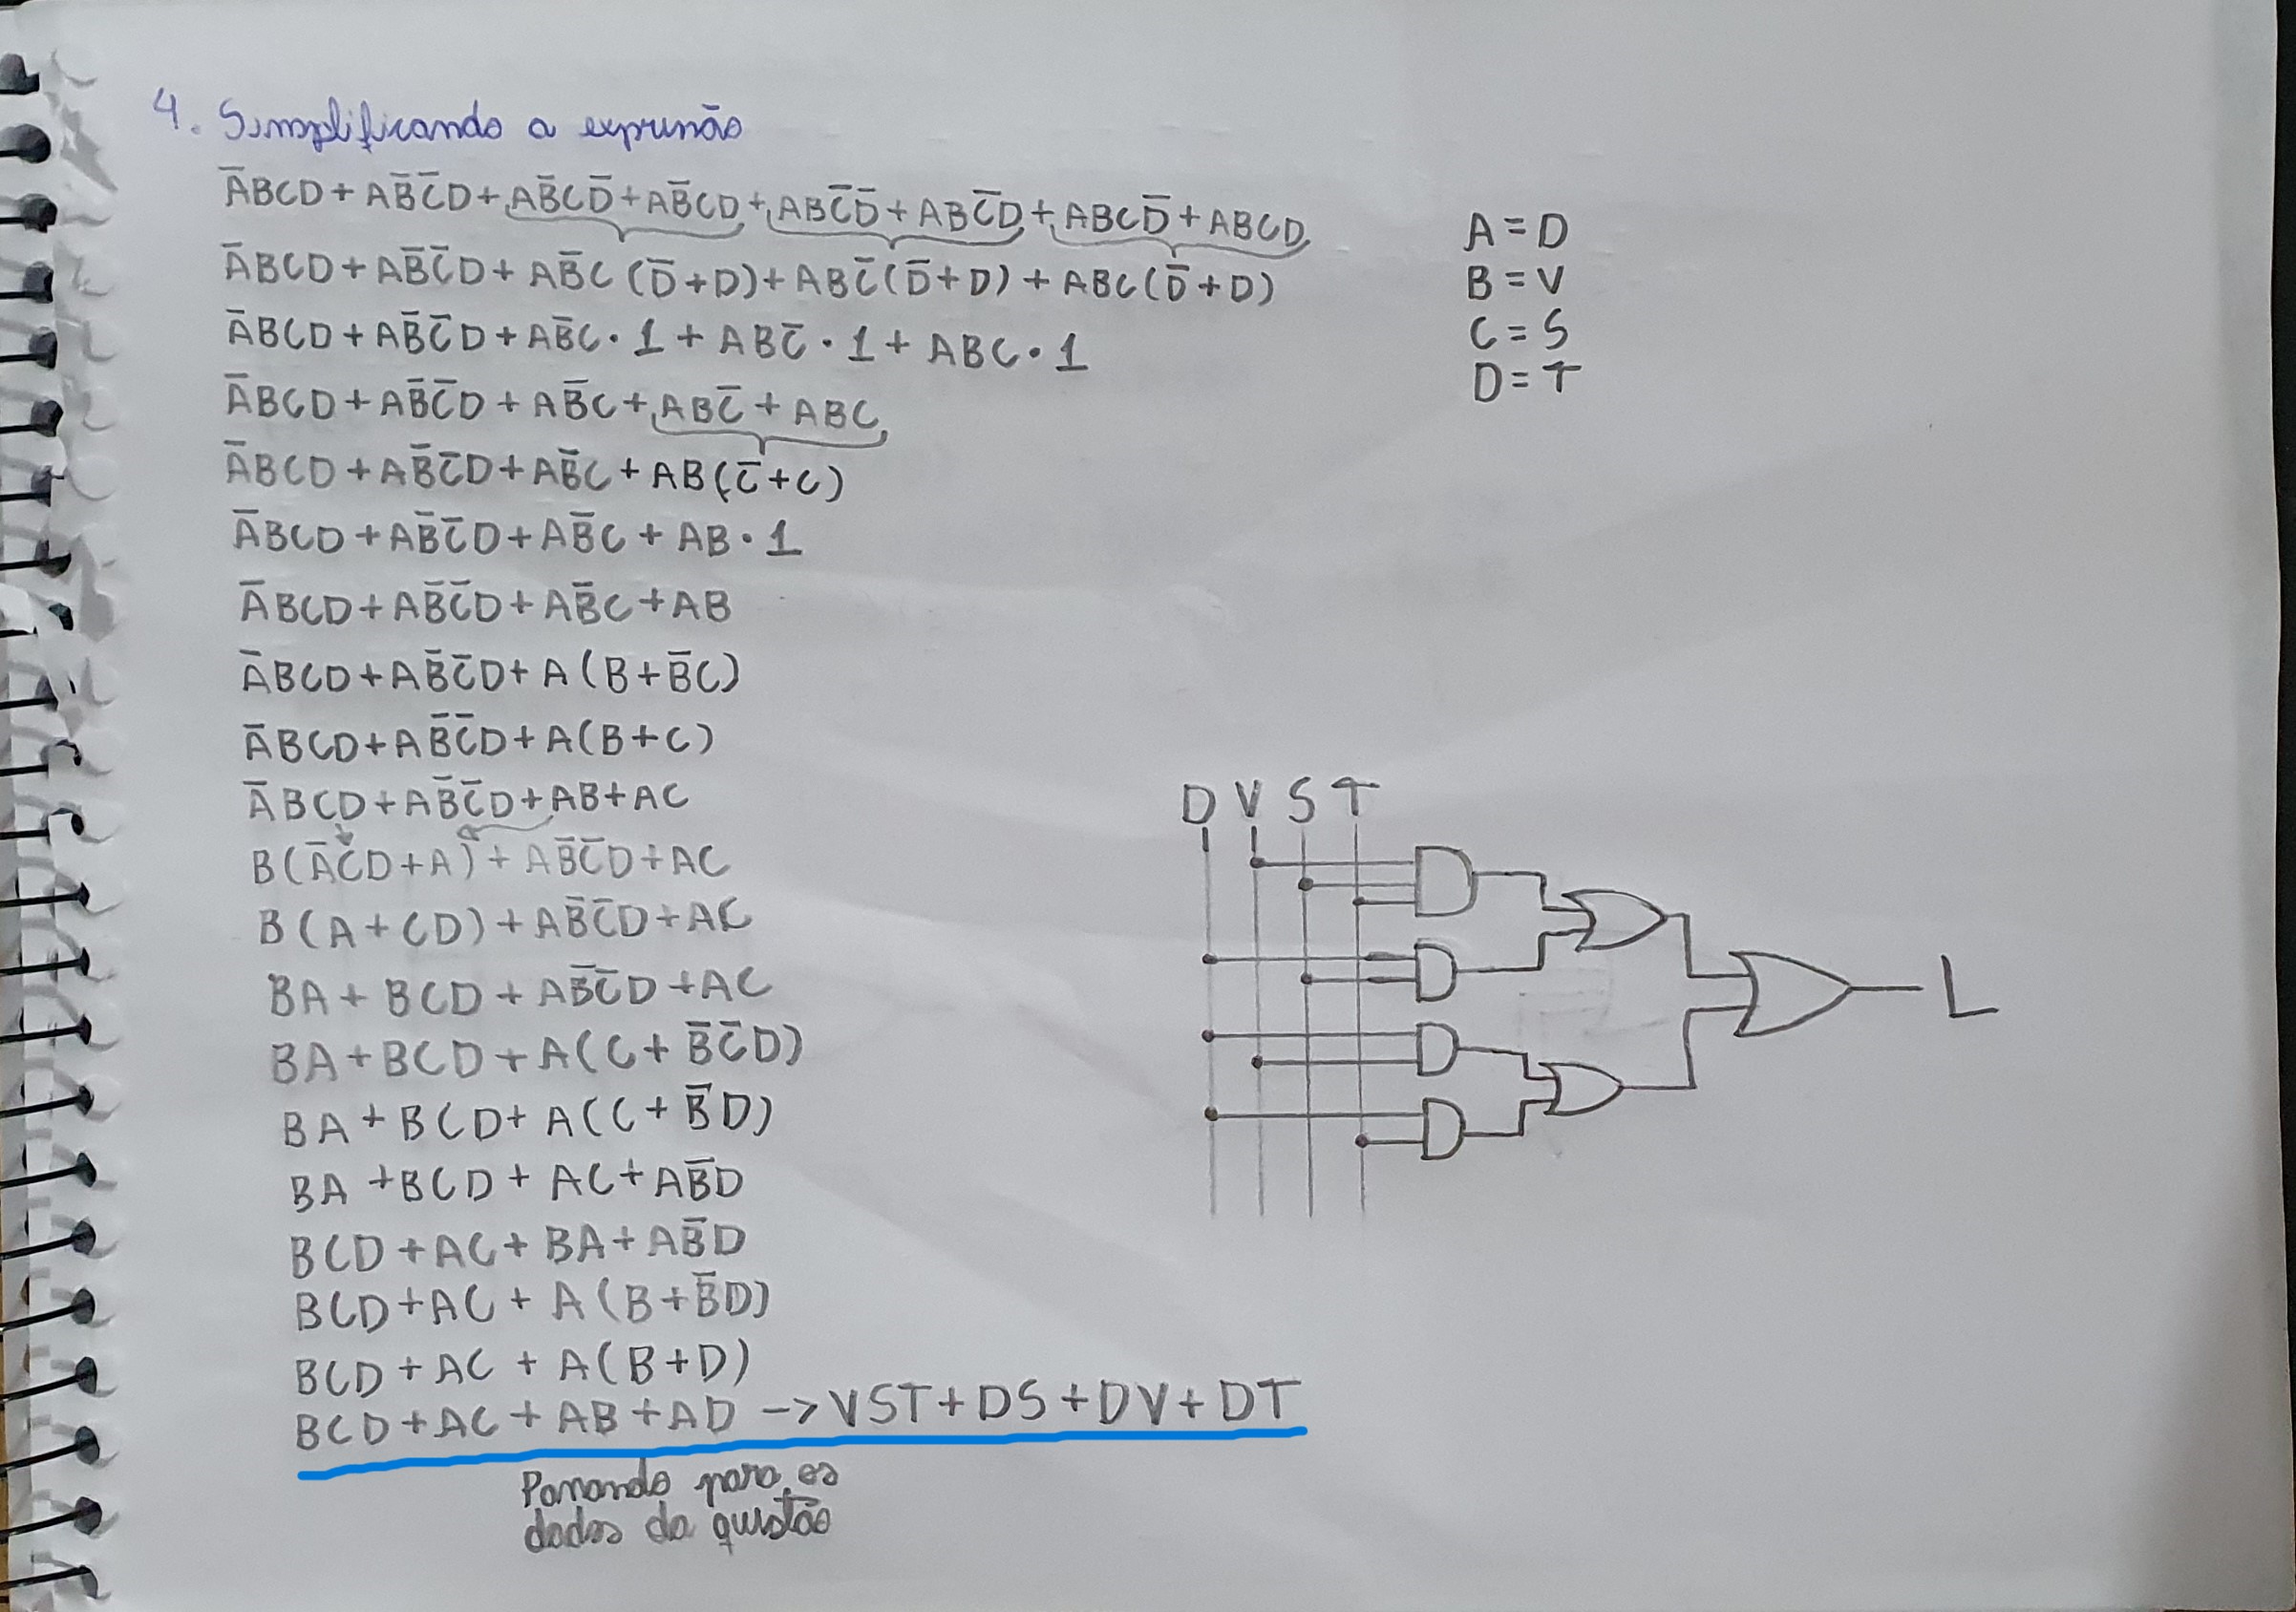 4. Simplificando a expressão
A̅BCD + AB̅C̅D + AB̅CD̅ + AB̅CD + ABC̅D̅ + ABC̅D + ABCD̅ + ABCD
A̅BCD + AB̅C̅D + AB̅C (D̅+D) + ABC̅(D̅+D) + ABC(D̅+D)
A̅BCD + AB̅C̅D + AB̅C · 1 + ABC̅ · 1 + ABC · 1
A̅BCD + AB̅C̅D + AB̅C + ABC̅ + ABC
A̅BCD + AB̅C̅D + AB̅C + AB(C̅+C)
A̅BCD + AB̅C̅D + AB̅C + AB · 1
A̅BCD + AB̅C̅D + AB̅C + AB
A̅BCD + AB̅C̅D + A(B+B̅C)
A̅BCD + AB̅C̅D + A(B+C)
A̅BCD + AB̅C̅D + AB + AC
B(A̅CD+A) + AB̅C̅D + AC
B(A+CD) + AB̅C̅D + AC
BA + BCD + AB̅C̅D + AC
BA + BCD + A(C+B̅C̅D)
BA + BCD + A(C+B̅D)
BA + BCD + AC + AB̅D
BCD + AC + BA + AB̅D
BCD + AC + A(B+B̅D)
BCD + AC + A(B+D)
BCD + AC + AB + AD -> VST + DS + DV + DT
Passando para os
dados da questão
A = D
B = V
C = S
D = T
D V S T
L